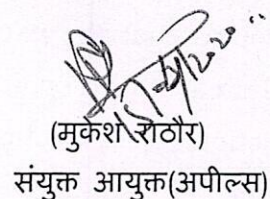 (मुकेश राठौर)
संयुक्त आयुक्त(अपील्स)